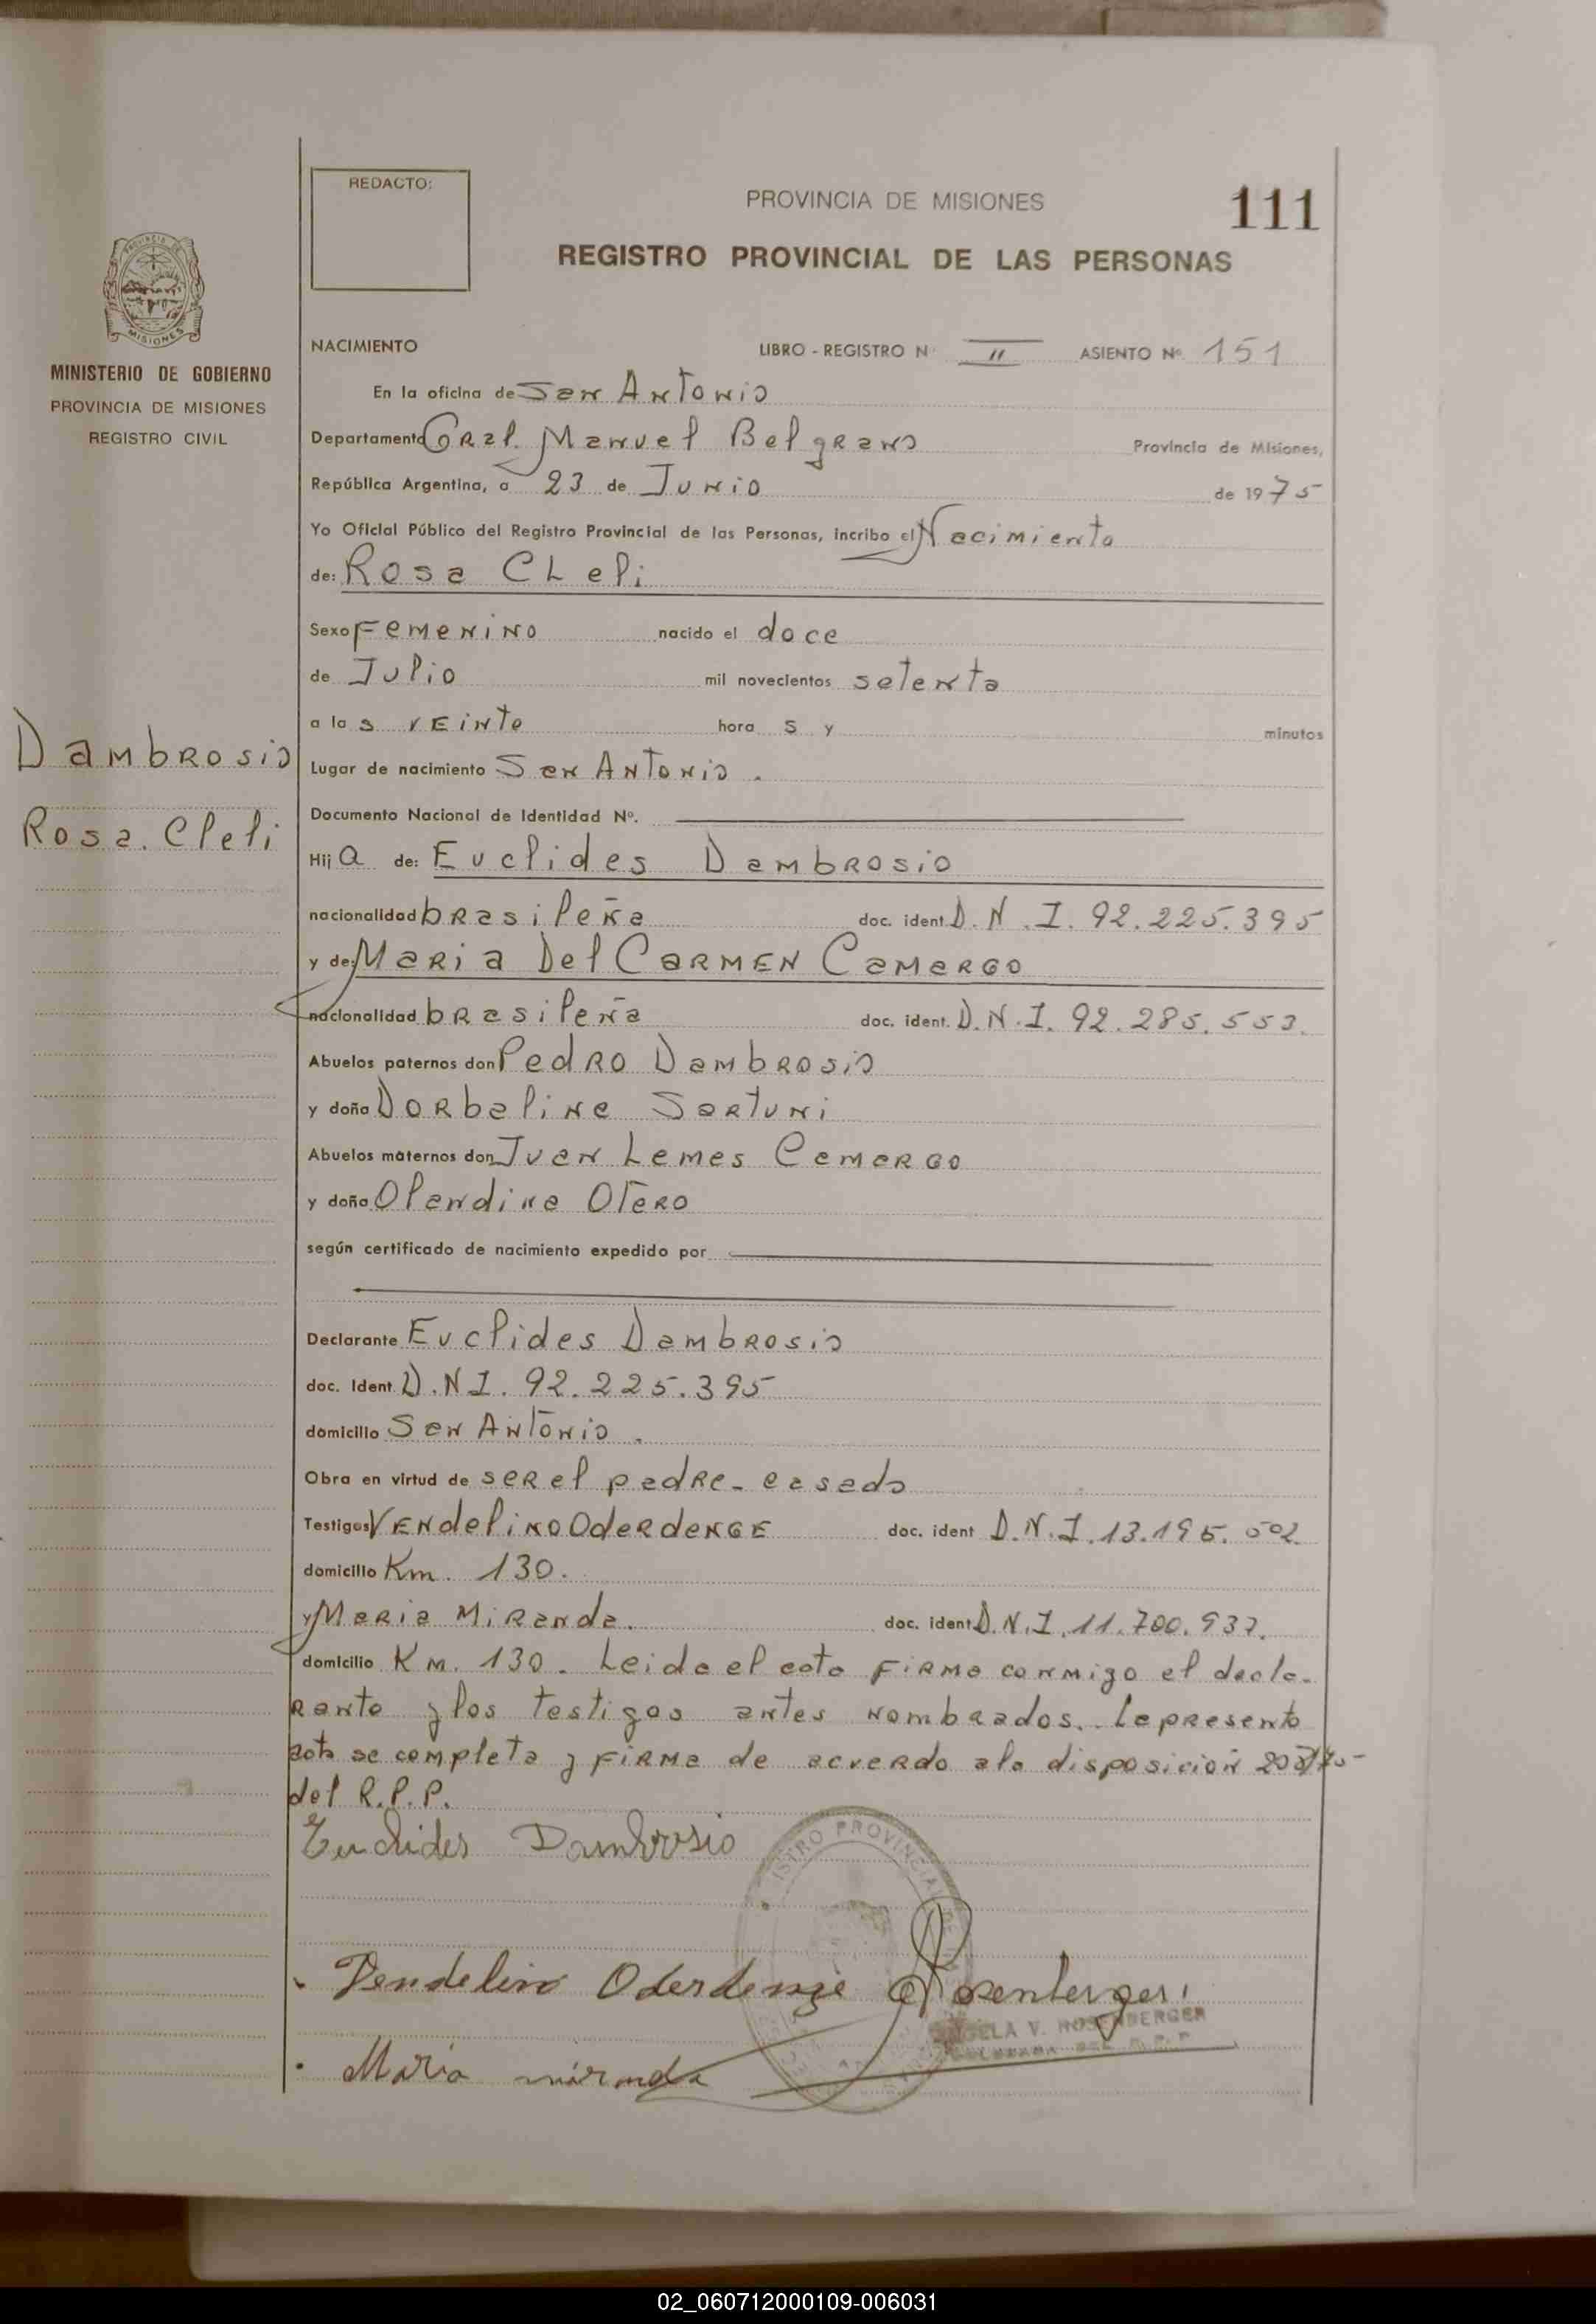 REDACTO:
PROVINCIA DE MISIONES
111
REGISTRO PROVINCIAL DE LAS PERSONAS
PROVINCIA DE
MISIONES
MINISTERIO DE GOBIERNO
PROVINCIA DE MISIONES
REGISTRO CIVIL
Dambrosio
Rosa. Cleli
NACIMIENTO LIBRO - REGISTRO N° II ASIENTO N° 151
En la oficina de San Antonio
Departamento Gral. Manuel Belgrano Provincia de Misiones,
República Argentina, a 23 de Junio de 1975
Yo Oficial Público del Registro Provincial de las Personas, incribo el Nacimiento
de: Rosa CLeli
Sexo Femenino nacido el doce
de Julio mil novecientos setenta
a las veinte horas y minutos
Lugar de nacimiento San Antonio.
Documento Nacional de Identidad N°.
Hija de: Euclides Dambrosio
nacionalidad brasileña doc. ident D.N.I. 92.225.395
y de: Maria Del Carmen Camargo
nacionalidad brasileña doc. ident. D.N.I. 92.285.553.
Abuelos paternos don Pedro Dambrosio
y doña Dorbalina Sartuni
Abuelos maternos don Juan Lemes Camargo
y doña Olandina Otero
según certificado de nacimiento expedido por
Declarante Euclides Dambrosio
doc. Ident D.N.I. 92.225.395
domicilio San Antonio.
Obra en virtud de ser el padre - casado
Testigos Vendelino Oderdenge doc. ident D.N.I. 13.195.502.
domicilio Km. 130.
y Maria Miranda. doc. ident D.N.I. 11.700.937.
domicilio Km. 130. Leida el acta firma conmigo el decla-
rante y los testigos antes nombrados. La presente
acta se completa y firma de acuerdo a la disposición
del R.P.P.
Euclides Dambrosio
ISTRO PROVINCIAL DE
Vendelino Oderdenge Rosenberger
ANGELA V. ROSENBERGER
DEL R.P.P
Maria miranda
02_060712000109-006031